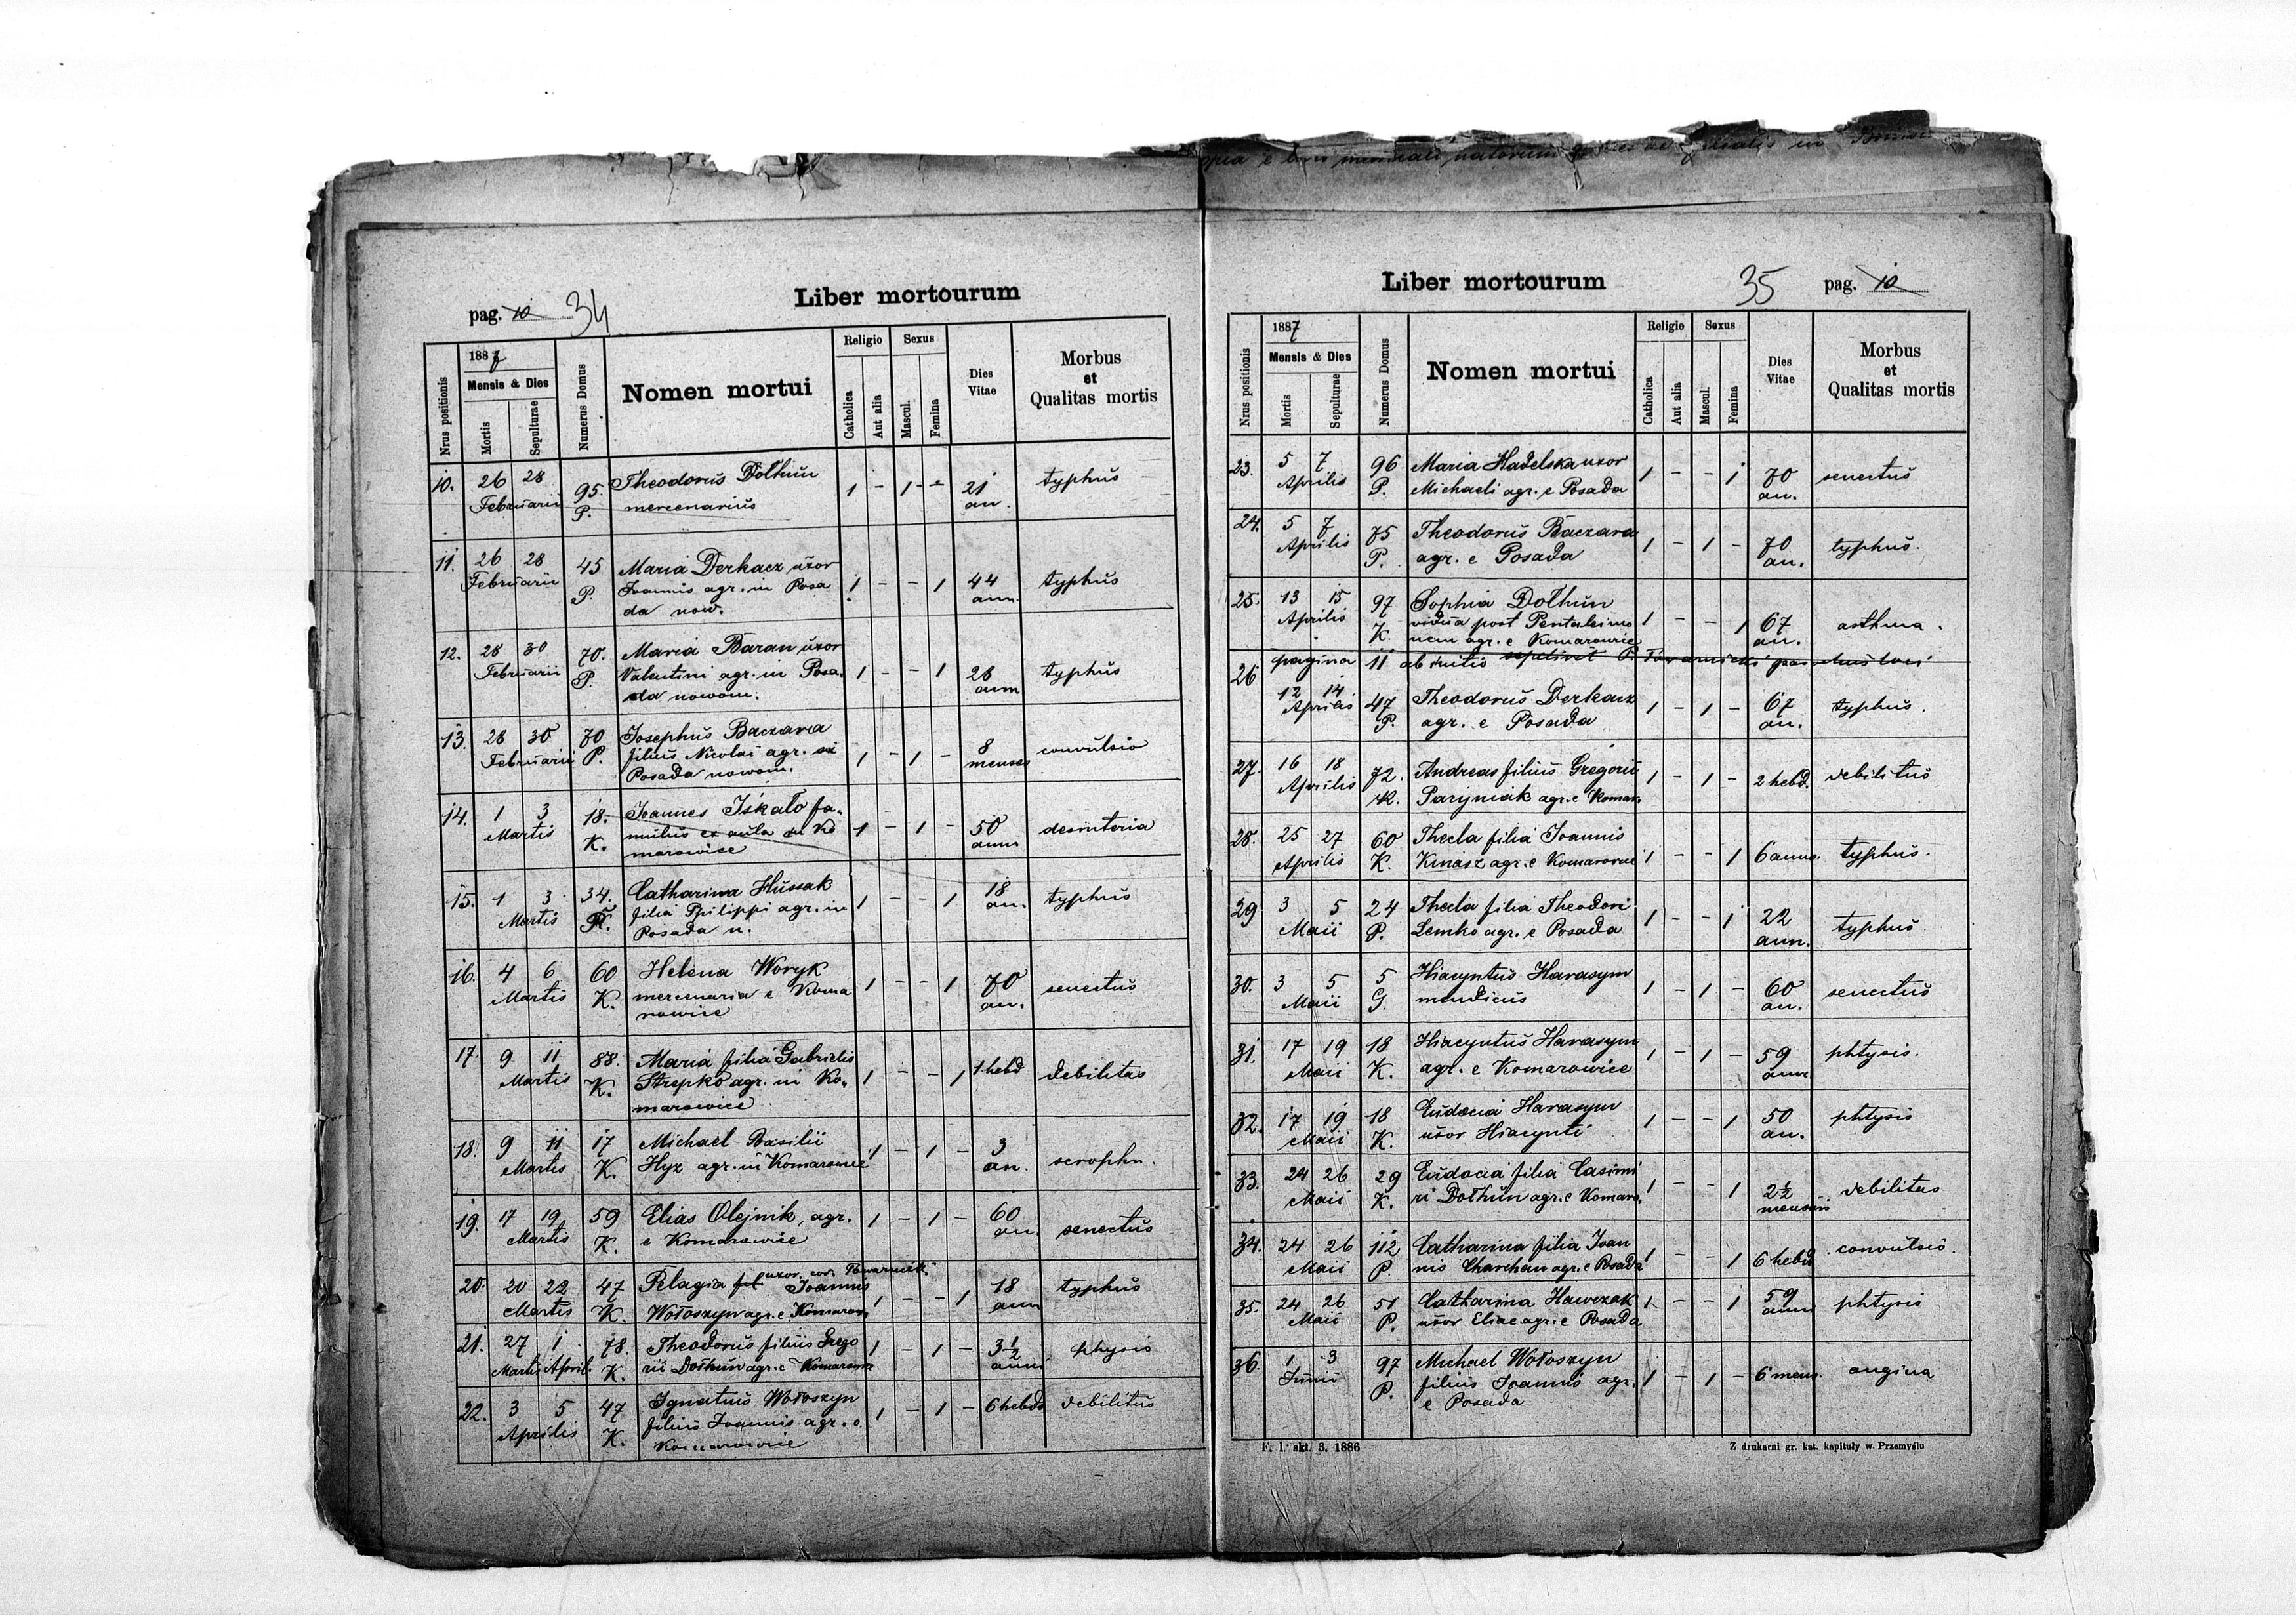 Liber mortourum
pag. 10 34
Nrus positionis
1887
Mensis & Dies
Mortis
Sepulturae
Numerus Domus
Nomen mortui
Religio
Catholica
Aut alia
Sexus
Mascul.
Femina
Dies Vitae
Morbus
et
Qualitas mortis
10. 26 28 95. Theodorus Dołhun 1 - 1 - 21 typhus
Februarii P. mercenarius an.
11. 26 28 45 Maria Derkacz uxor 1 - - 1 44 typhus
Februarii P. Joannis agr. in Posa ann.
da now.
12. 28 30 70. Maria Baran uxor 1 - - 1 28 typhus
Februarii P. Valentini agr. in Posa- ann
da nowom.
13. 28 30 70 Josephus Baczara 1 - 1 - 8 convulsio
Februarii P. filius Nicolai agr. in menses
Posada nowom.
14. 1 3 18. Joannes Iskało fa- 1 - 1 - 50 desinteria
Martis K. mulus ex aula in Ko ann
marowice
15. 1 3 34. Catharina Hussak 1 - - 1 18 typhus
Martis filia Philippi agr. in an.
Posada n.
16. 4 6 60 Helena Woryk 1 - - 1 70 senectus
Martis K. mercenaria e Koma an.
rowice
17. 9 11 88. Maria filia Gabrielis 1 - - 1 1 hebd debilitas
Martis K. Strepko agr. in Ko-
marowice
18. 9 11 17 Michael Basilii 1 - 1 - 3 scrophn.
Martis K. Hyz agr. in Komarowice an.
19. 17 19 59 Elias Olejnik, agr. 1 - 1 - 60 senectus
Martis K. e Komarowice an.
uxor cor. Towarnicki
20. 20 22 47 Pelagia fil Joannis 1 - - 1 18 typhus
Martis K. Wołoszyn agr. e Komarow ann
21. 27 1 78. Theodorus filius Grego 1 - 1 - 3½ physis
Martis April. K. rii Dołhun agr. e Komarow anni
22. 3 5 47 Ignatius Wołoszyn 1 - 1 - 6 hebd debilitus
Aprilis K. filius Joannis agr. e
Komarowice
Liber mortourum
35 pag. 10
Nrus positionis
1887
Mensis & Dies
Mortis
Sepulturae
Numerus Domus
Nomen mortui
Religio
Catholica
Aut alia
Sexus
Mascul.
Femina
Dies
Vitae
Morbus
et
Qualitas mortis
23. 5 7 96 Maria Hadelska uxor 1 - - 1 70 senectus
Aprilis P. Michaeli agr. e Posada an.
24. 5 7 75 Theodorus Baczara 1 - 1 - 70 typhus.
Aprilis P. agr. e Posada an.
25. 13 15 97 Sophia Dołhun 1 - - 1 67 asthma.
Aprilis K. vidua post Pentaleimo an.
nem agr. e Komarowice
26 pagina 11 ab initio P. Towarnicki parochus loci
12 14 47 Theodorus Derkacz 1 - 1 - 67 typhus.
Aprilis P. agr. e Posada an.
27. 16 18 72. Andreas filius Gregorii 1 - 1 - 2 hebd. debilitus
Aprilis K. Paryniak agr. e Komar.
28. 25 27 60 Thecla filia Joannis 1 - - 1 6 anno. typhus.
Aprilis K. Kinasz agr. e Komarowice
29 3 5 24 Thecla filia Theodori 1 - - 1 22 typhus
Maii P. Lemko agr. e Posada ann.
30. 3 5 5 Hiacyntus Harasym 1 - 1 - 60 senectus
Maii G. mendicus an.
31. 17 19 18 Hiacyntus Harasym 1 - 1 - 59 phtysis.
Maii K. agr. e Komarowice ann
32. 17 19 18 Eudocia Harasym 1 - - 1 50 phtysis
Maii K. uxor Hiacynti an.
33. 24 26 29 Eudocia filia Casimi 1 - - 1 2½ debilitas
Maii K. ri Dołhun agr. e Komaro. mensium
34. 24 26 112 Catharina filia Joan 1 - - 1 6 hebd convulsio.
Maii P. nis Charchan agr. e Posada
35. 24 26 51 Catharina Hawczak 1 - - 1 59 phtysis
Maii P. uxor Eliae agr. e Posada anni
36. 1 3 97 Michael Wołoszyn 1 - 1 - 6 mens. angina
Junii P. filius Joannis agr.
e Posada
F. l. skł. 3. 1886 Z drukarni gr. kat. kapituły w Przemyślu